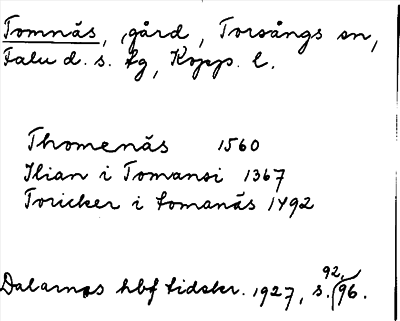 Tomnäs, gård, Torsångs sn,
Falu d. s. tg, Kopp. l.
Thomenäs 1560
Ilian i Tomansi 1367
Toricker i tomanäs 1492
Dalarnas hbf tidskr. 1927, s. 92, 96.